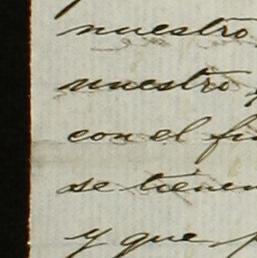 nuestro
nuestro
con el
se tienen
y que